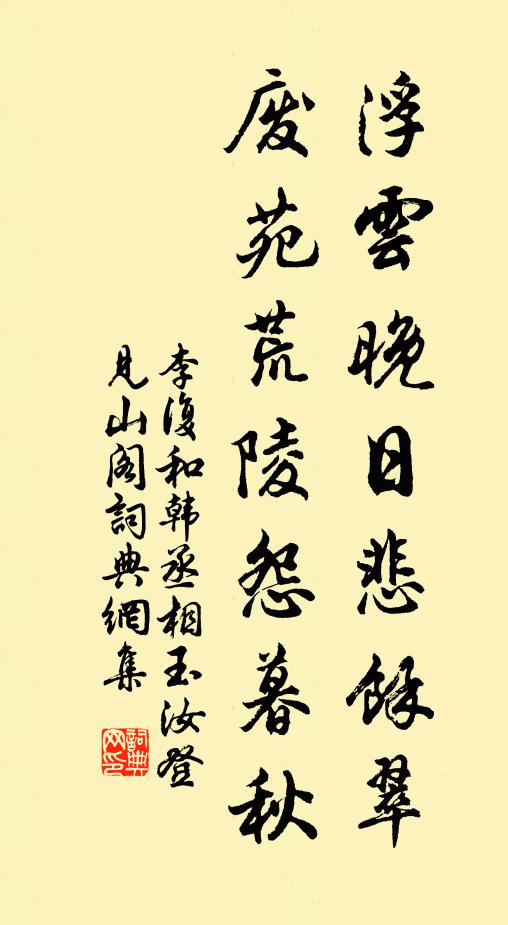 浮雲晚日悲餘翠
廢苑荒陵怨暮秋
李復和韩丞相玉汝登
見山阁詞典網集
詞典网印